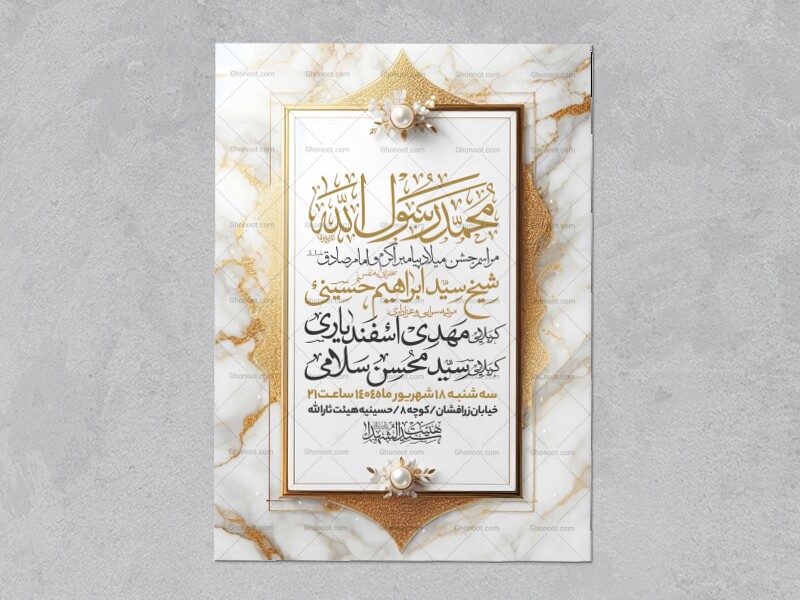 محمد رسول الله
مراسم جشن میلاد پیامبر اکرم و امام صادق
شیخ سید ابراهیم حسینی
مرثیه سرایی و عزاداری:
کربلایی مهدی اسفندیاری
کربلایی سید محسن سلامی
سه شنبه ۱۸ شهریور ماه ۱۴۰۴ ساعت ۲۱
خیابان زرافشان / کوچه ۸ / حسینیه هیئت ثارالله
هیئت سیدالشهدا
Ghonoot.com